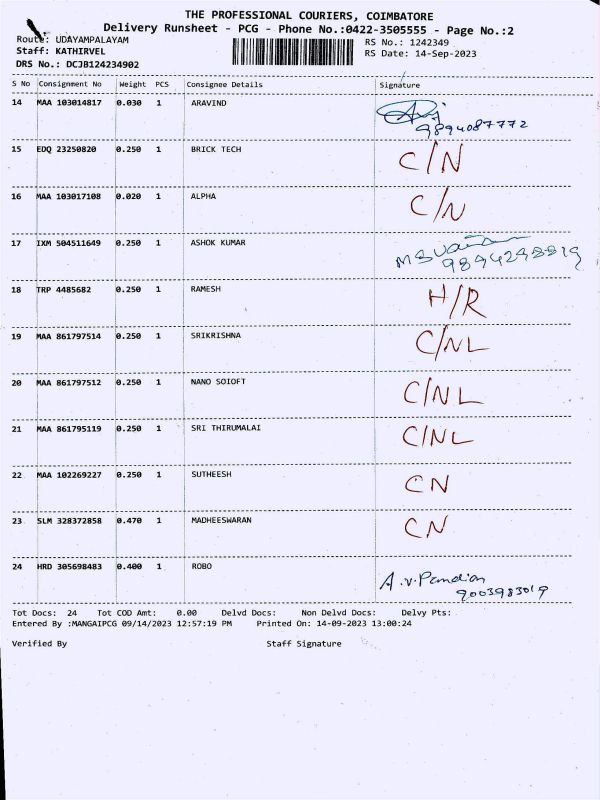 THE PROFESSIONAL COURIERS, COIMBATORE
Delivery Runsheet - PCG - Phone No.:0422-3505555 - Page No.:2
Route: UDAYAMPALAYAM RS No.: 1242349
Staff: KATHIRVEL RS Date: 14-Sep-2023
DRS No.: DCJB124234902
S No Consignment No Weight PCS Consignee Details Signature
14 MAA 103014817 0.030 1 ARAVIND
9894087772
15 EDQ 23250820 0.250 1 BRICK TECH C/N
16 MAA 103017108 0.020 1 ALPHA C/N
17 IXM 504511649 0.250 1 ASHOK KUMAR
18 TRP 4485682 0.250 1 RAMESH H/R
19 MAA 861797514 0.250 1 SRIKRISHNA C/NL
20 MAA 861797512 0.250 1 NANO SOIOFT C/NL
21 MAA 861795119 0.250 1 SRI THIRUMALAI C/NL
22 MAA 102269227 0.250 1 SUTHEESH CN
23 SLM 328372858 0.470 1 MADHEESWARAN CN
24 HRD 305698483 0.400 1 ROBO A.V.Pandian
9003983019
Tot Docs: 24 Tot COD Amt: 0.00 Delvd Docs: Non Delvd Docs: Delvy Pts:
Entered By :MANGAIPCG 09/14/2023 12:57:19 PM Printed On: 14-09-2023 13:00:24
Verified By Staff Signature